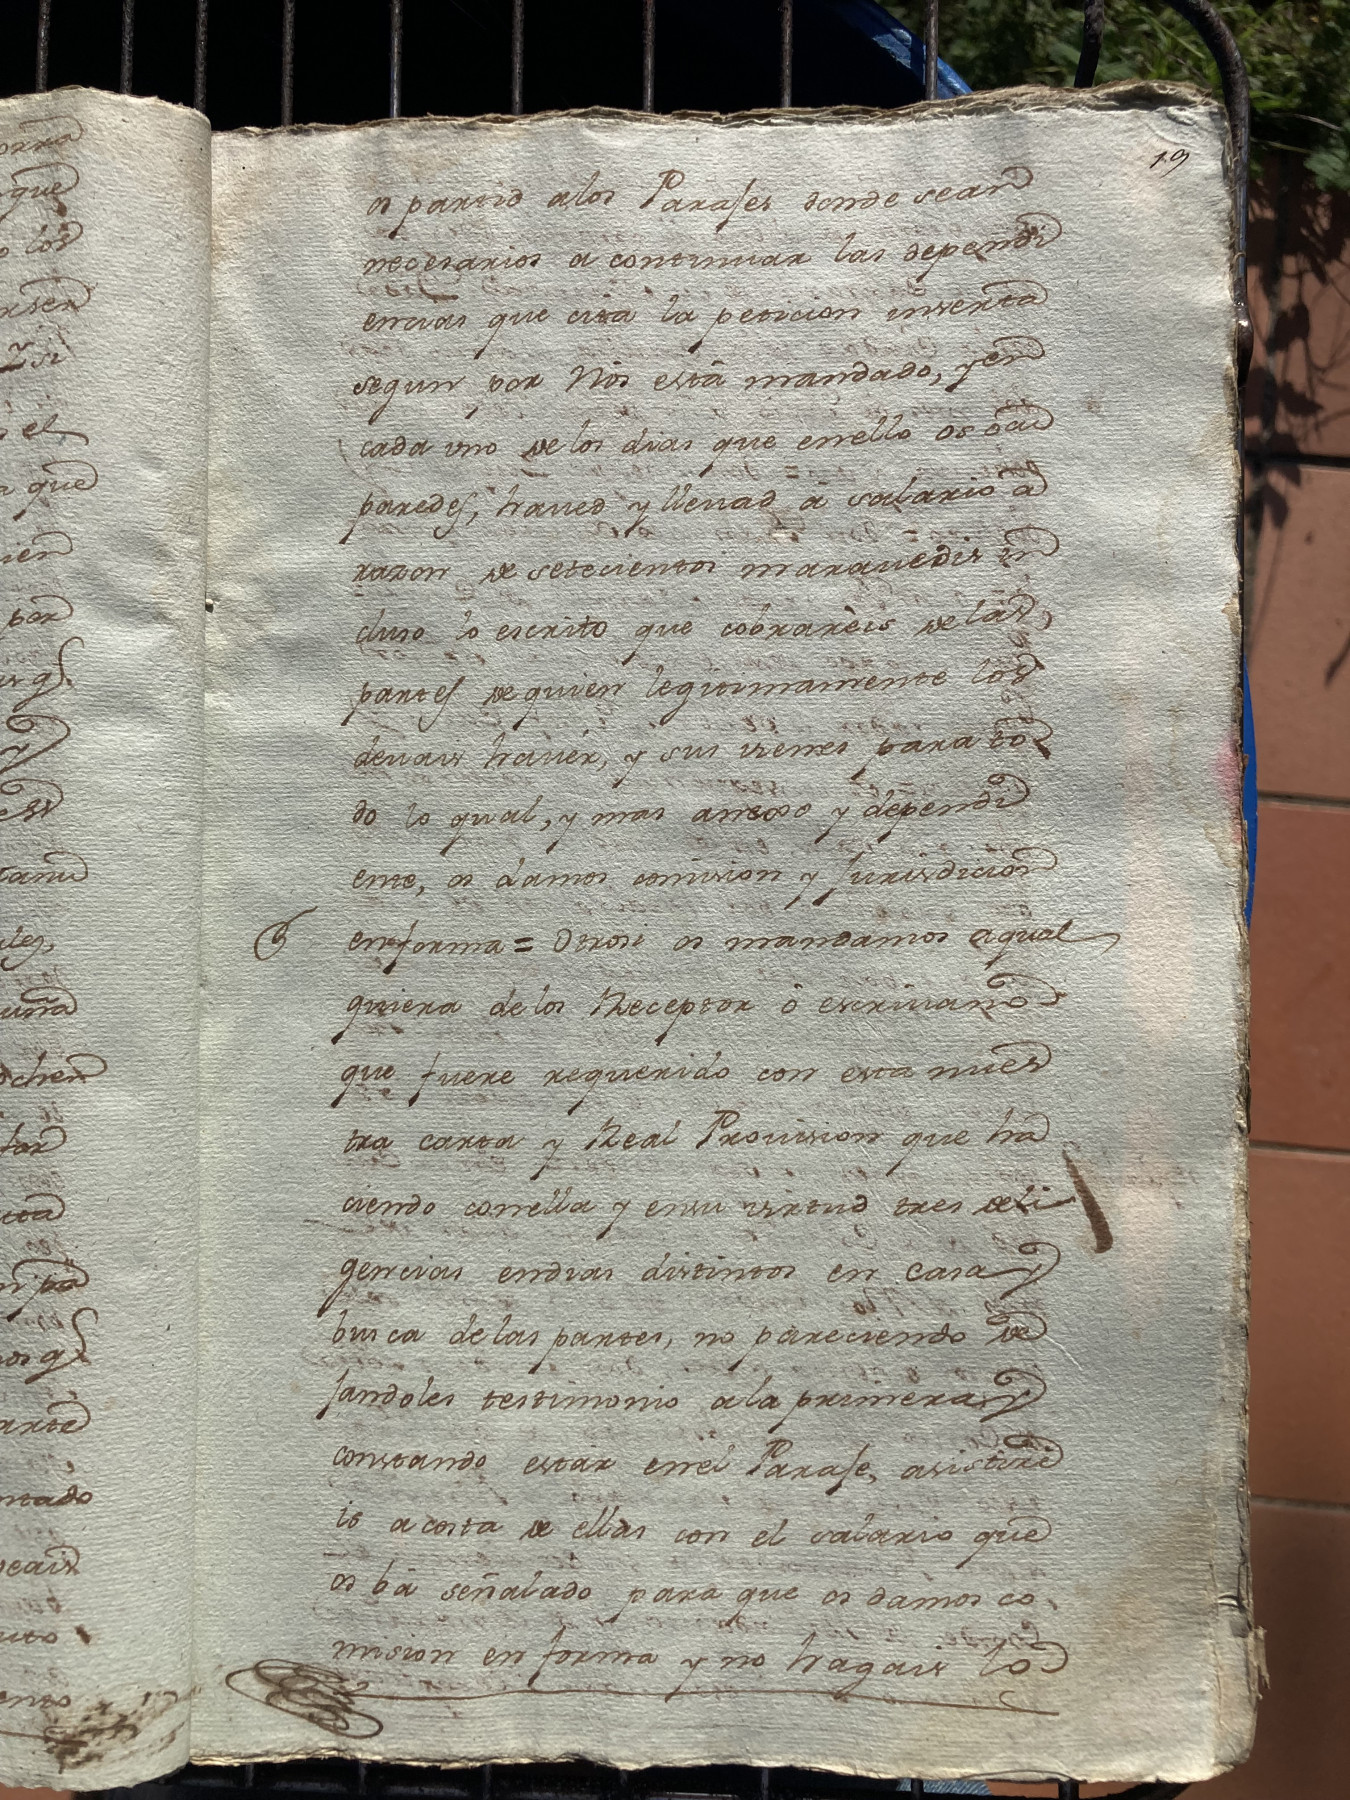 19
os partid alos Parajes donde sean
necesarios a continuar las dependi
encias que cita la peticion inserta
segun por Nòs està mandado, y en
cada vno de los dias que enello os ocu
paredes, haued y lleuad â salario â
razon de setecientos marauedis in
cluso lo escrito que cobrarèis de las
partes de quien legitimamente los
deuais hauèr, y sus vienes para to
do lo qual, y mas anexo y dependi
ente, os damos comision y jurisdicion
enforma = Otrosi os mandamos aqual
quiera delos Receptor ô escriuano
que fuere requerido con esta nues
tra carta y Real Prouision que ha
ciendo conella y ensu virtud tres deli
gencias endias distintos en casa y
busca delas partes, no pareciendo de
jandoles testimonio ala primera y
constando estàr enel Paraje, asistire
is acosta de ellas con el salario que
os bà señalado para que os damos co
mision en forma y no hagais lo
que
el
que
por